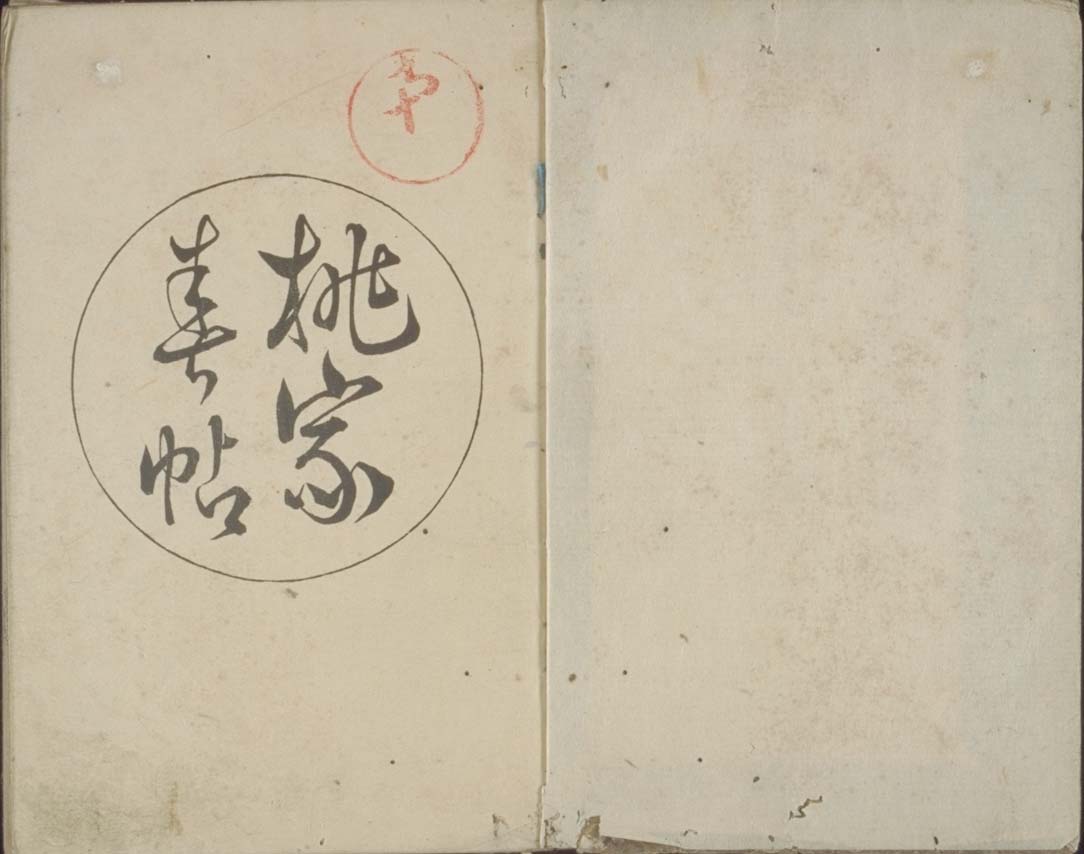 桃家
春帖